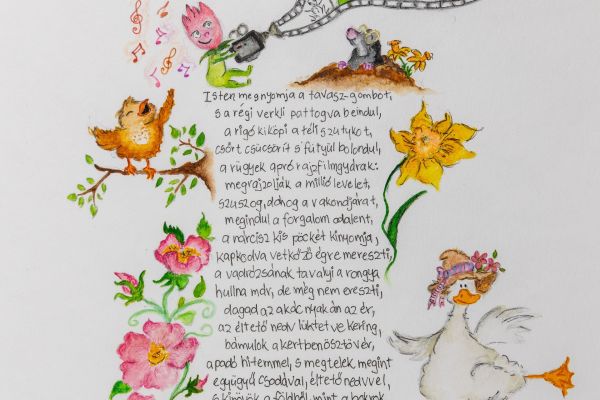 Isten megnyomja a tavasz-gombot,
s a régi verkli pattogva beindul,
a rigó kiköpi a téli szutykot,
csőrt csücsörít s fütyül bolondul,
a rügyek apró rajzfilmgyárak:
megrajzolják a millió levelet,
szuszog, dohog a vakondjárat,
megindul a forgalom odalent,
a nárcisz kis pöckét kinyomja,
kapkodva vetkőző égre mereszti,
a vadrózsának tavalyi a rongya
hullna már, de még nem ereszti,
dagad az akác nyakán az ér,
az éltető nedv lüktetve kering,
bámulok a kertben ösztövér,
apadó hitemmel, s megtelek megint
együgyű csodával, éltető nedvvel,
s kinövök a földből, mint a bokrok